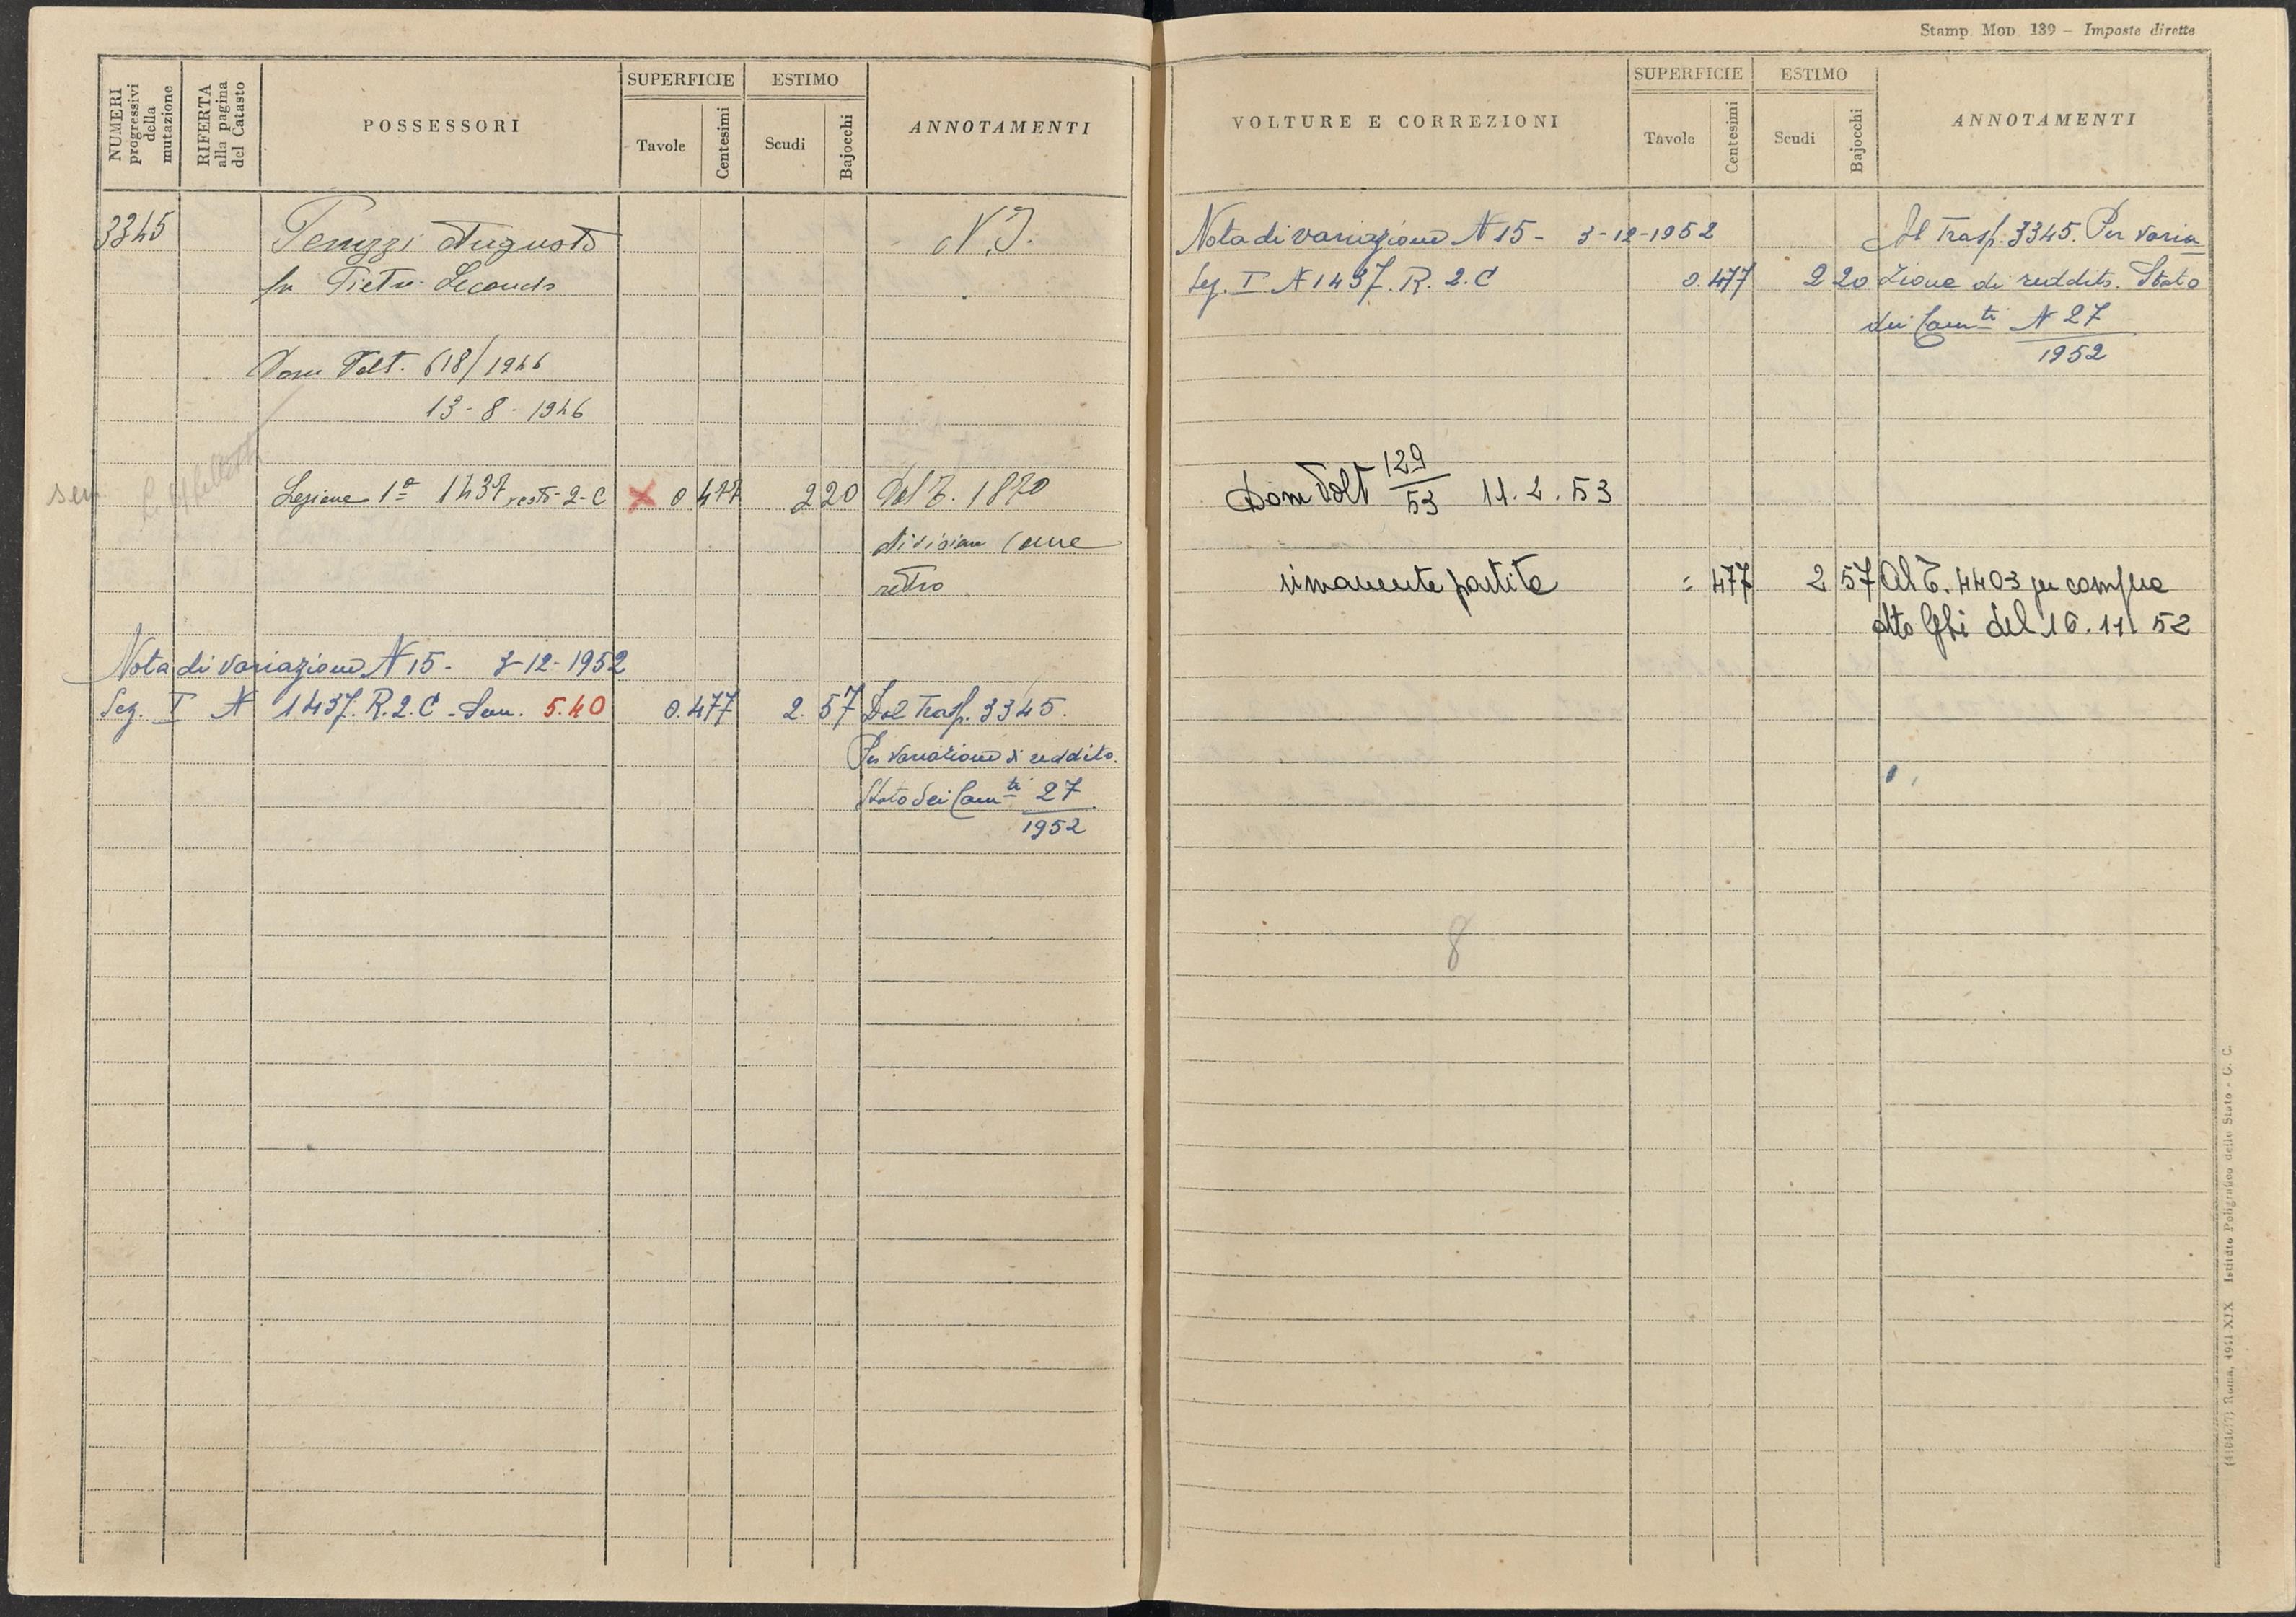 NUMERI progressivi della mutazione
RIFERTA alla pagina del Catasto
POSSESSORI
SUPERFICIE
Tavole
Centesimi
ESTIMO
Scudi
Bajocchi
ANNOTAMENTI
3345
Peruzzi Augusto
N. I.
fu Pietro Secondo
Dom Volt. 618/1946
13-8-1946
Sezione 1ª 1437 resto-2-C X 0 477 2 20 Dal T. 1870
divisione come
retro
Nota di variazione N 15- 3-12-1952
Sez. I N 1437. R. 2. C - 5.40 0.477 2.57 Dal Trasp. 3345.
Per variazione di reddito.
Stato dei Cam.ti 27
1952
Stamp. Mod. 139 - Imposte dirette
VOLTURE E CORREZIONI
SUPERFICIE
Tavole
Centesimi
ESTIMO
Scudi
Bajocchi
ANNOTAMENTI
Nota di variazione N 15 - 3-12-1952 Al Trasp. 3345. Per varia
Sez. I N 1437. R. 2. C 0.477 2 20 zione di reddito. Stato
dei Cam.ti N 27
1952
Dom Volt 129/53 11. 2. 53
rimanente partita = 477 2 57 Al T. 4403 per compra
atto Ghi del 16. 11. 52
8
Roma, 1941-XIX Istituto Poligrafico dello Stato - G. C.